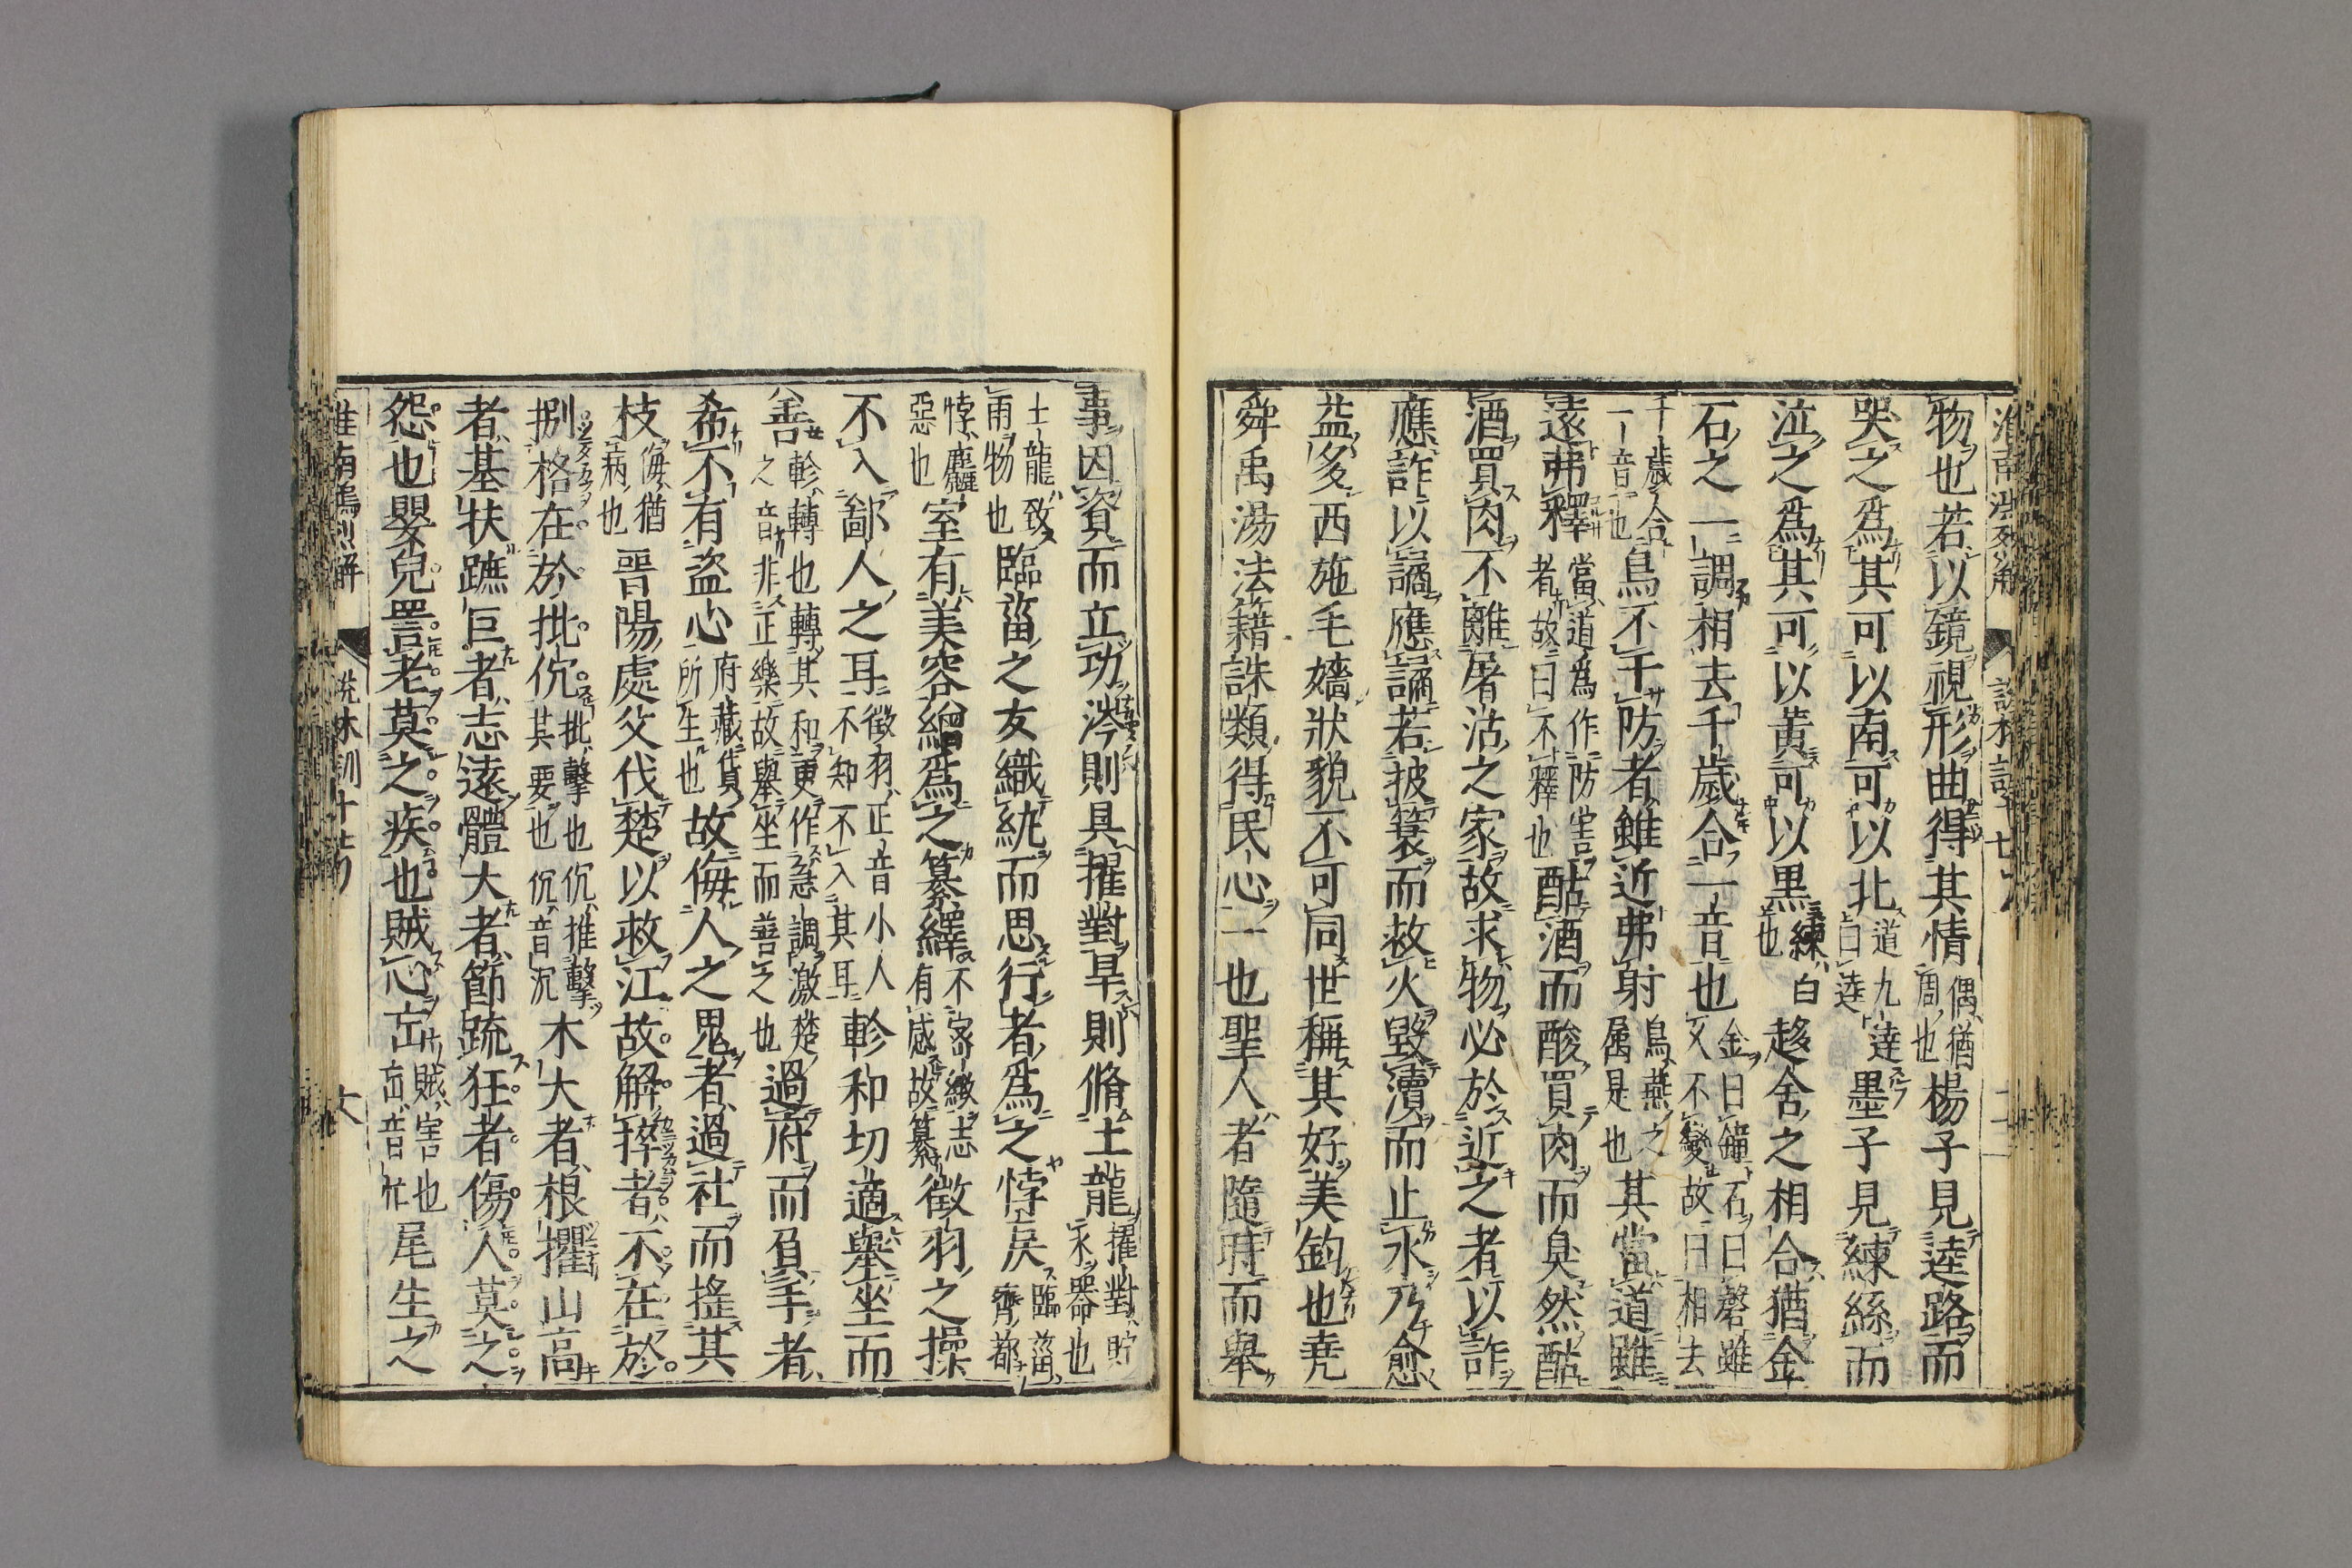 淮南鴻烈解 說林訓十七
物也若以鏡視形曲得其情偶猶周也楊子見逵路而
哭之爲其可以南可以北道九逵曰逵墨子見練絲而
泣之爲其可以黃可以黑練白也趍舍之相合猶金
石之一調相去千歲合一音也金曰鐘石曰磬雖久不變故曰相去
千歲合一音也鳥不干防者雖近弗射鳥燕之属是也其當道雖
遠弗釋當道爲作防害者故曰不釋也酤酒而酸買肉而臭然酤
酒買肉不離屠沽之家故求物必於近之者以詐
應詐以譎應譎若披蓑而救火毀瀆而止水乃愈
益多西施毛嬙狀貌不可同世稱其好美鈞也堯
舜禹湯法籍誅類得民心一也聖人者隨時而舉
事因資而立功涔則具擢對旱則脩土龍擢對貯水器也
土龍致雨物也臨菑之女織紈而思行者爲之悖戾臨菑齊都
悖麤惡也室有美容繒爲之纂繹不密緻志有感故纂徵羽之操
不入鄙人之耳徵羽正音小人不知不入其耳軫和切適舉坐而
善軫轉也轉其和更作急調激楚之音非正樂故舉坐而善之也過府而負手者
希不有盜心府藏貨所生也故侮人之鬼者過社而搖其
枝侮猶病也晉陽處父伐楚以救江故解捽者不在於
捌格在於批伔批擊也伔推擊其要也伔音沉木大者根欋山高
者基扶蹠巨者志遠體大者節疏狂者傷人莫之
怨也嬰兒詈老莫之疾也賊心㤀賊害也㤀音忙尾生之
淮南鴻烈解 說林訓十七 六